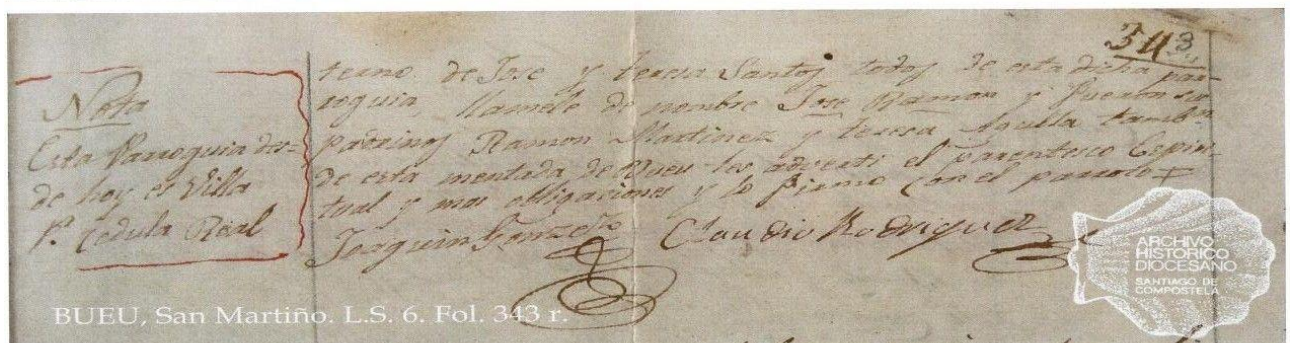 343
Nota
Esta Parroquia des-
de hoy es Villa
Pr. cedula Real
terno de Jose y teresa Santos todos de esta dicha par-
roquia, llamele de nombre Jose Ramon y fueron sus
padrinos Ramon Martinez y teresa Agulla tambn
de esta mentada de Bueu les adverti el parentesco Espiri-
tual y mas obligaciones y lo firmo con el parroco
Joaquin Claudio Rodriguez
ARCHIVO
HISTORICO
DIOCESANO
SANTIAGO DE
COMPOSTELA
BUEU, San Martiño. L.S. 6. Fol. 343 r.